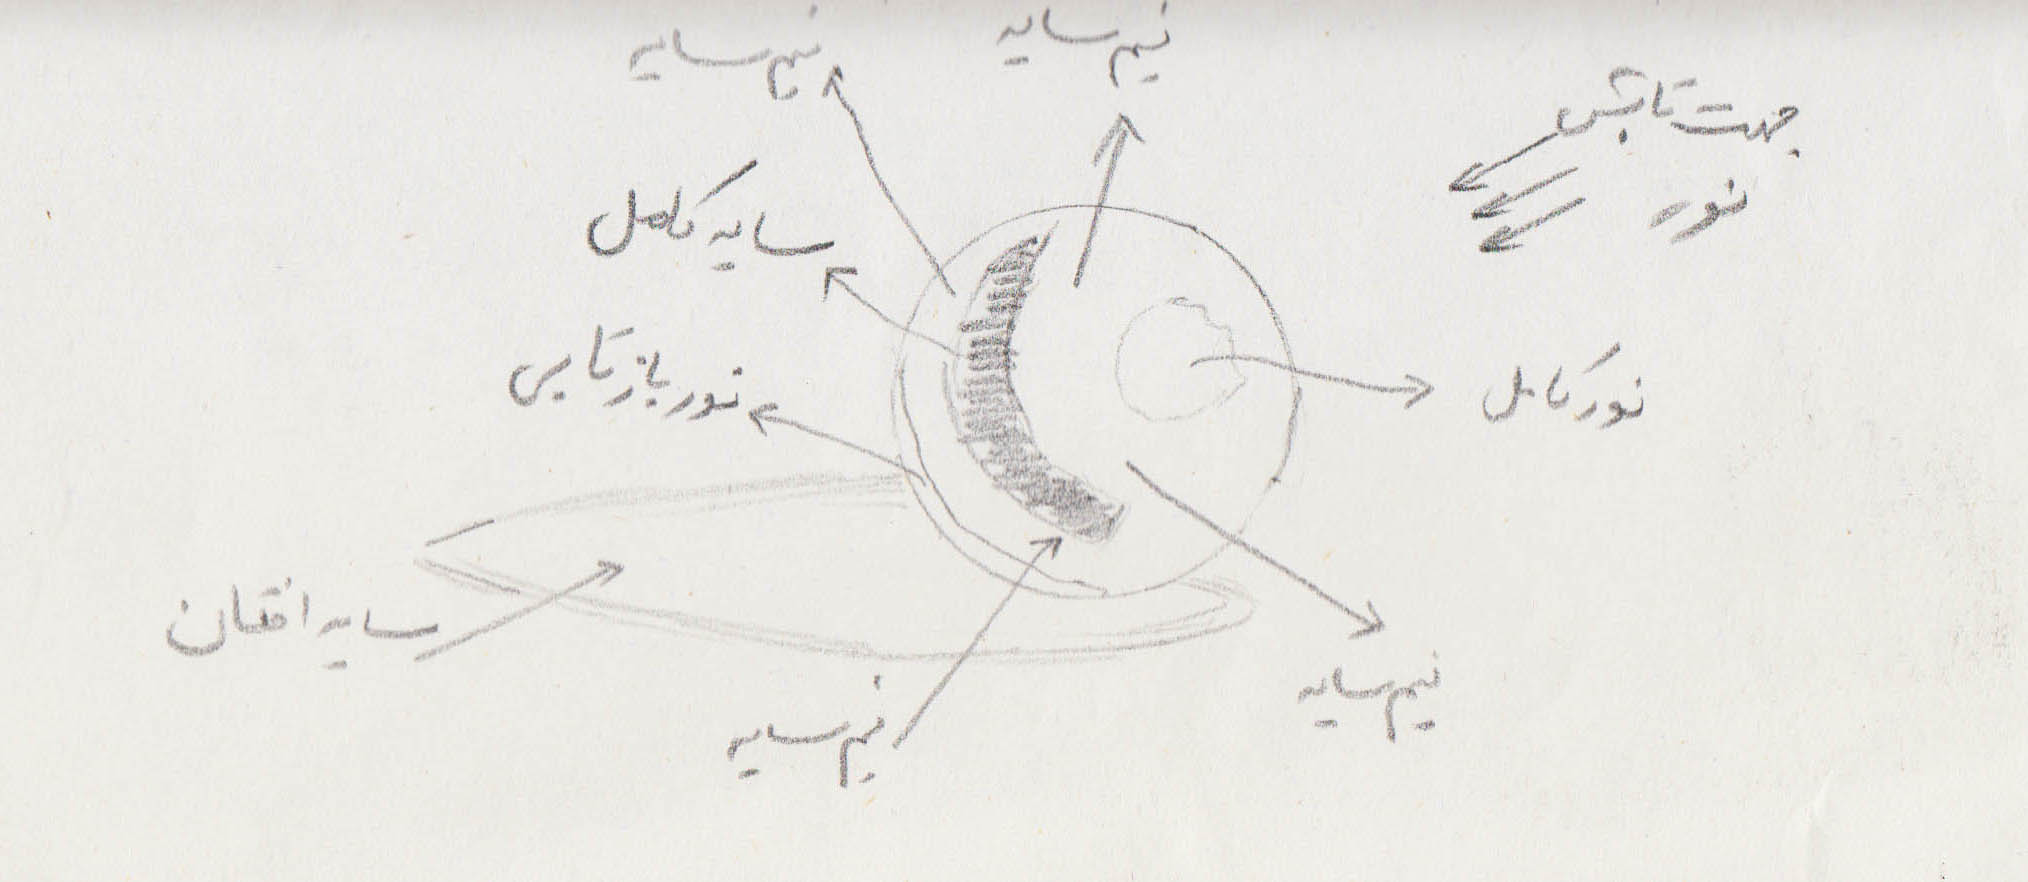 نیم سایه
نیم سایه
جهت تابش
نور
سایه کامل
نور بازتابی
نور کامل
سایه افقان
نیم سایه
نیم سایه